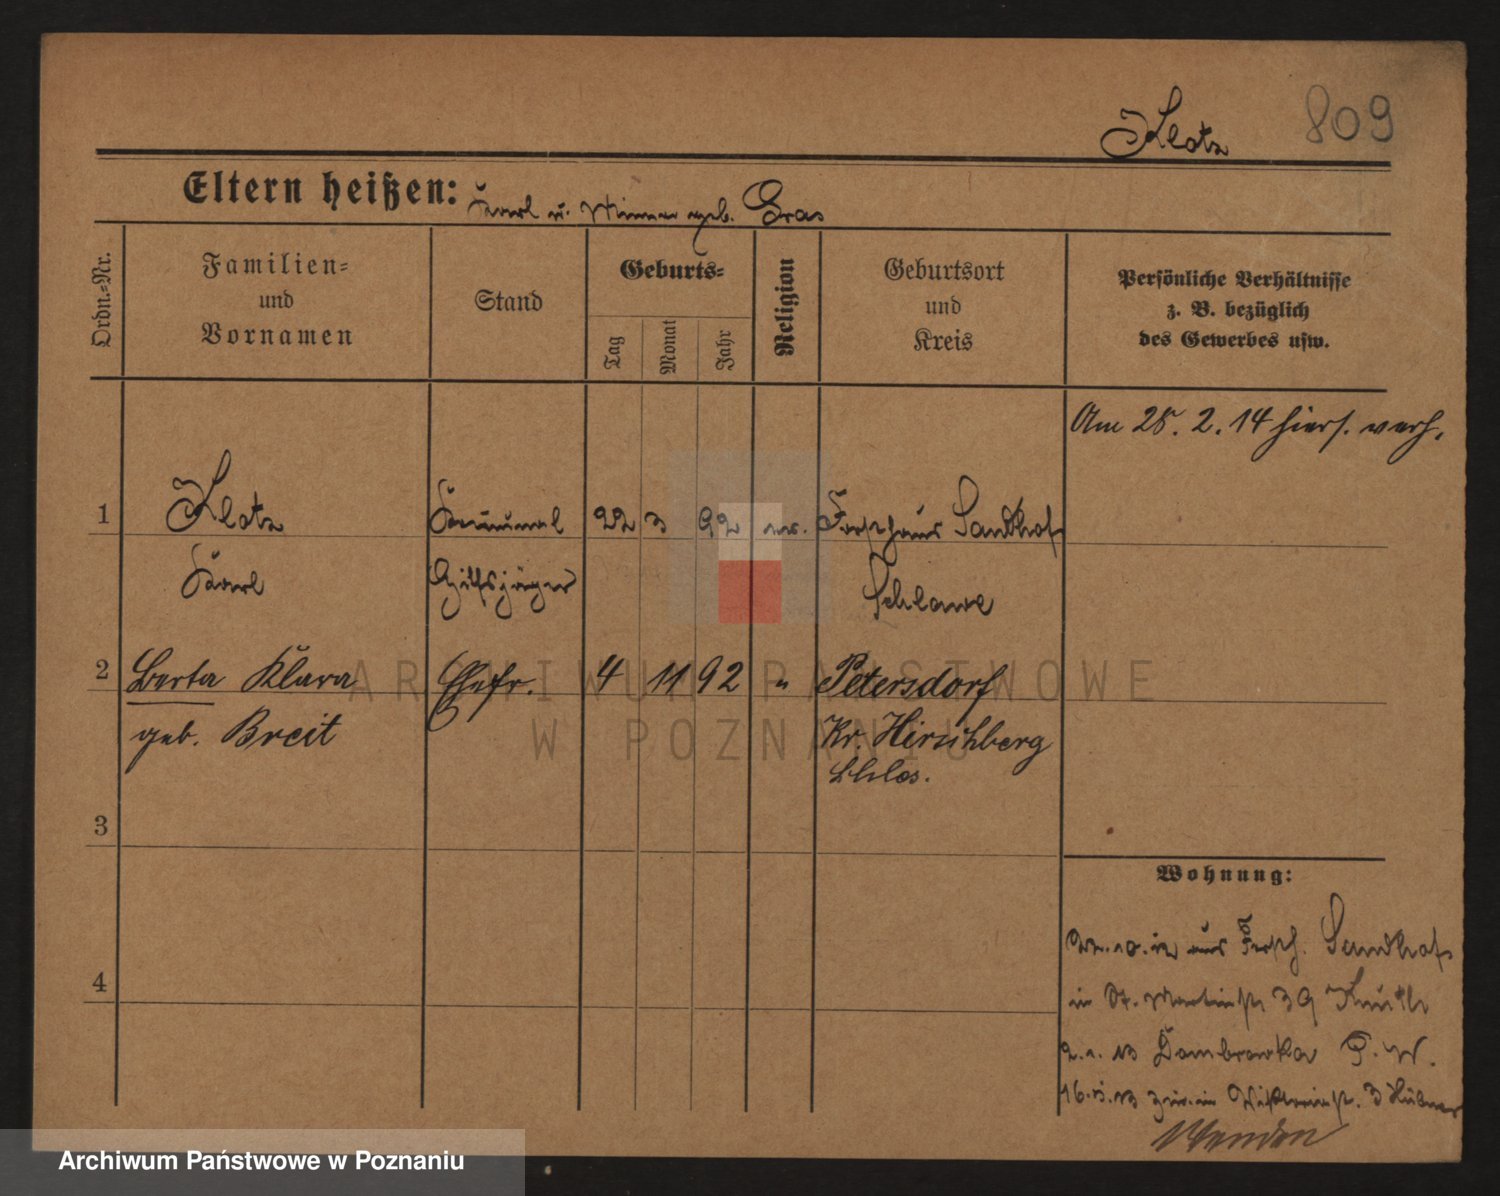 Klotz 809
Eltern heißen: Karl u. Minna geb. Gras
Ordn.-Nr.
Familien-
und
Vornamen
Stand
Geburts-
Tag
Monat
Jahr
Religion
Geburtsort
und
Kreis
Persönliche Verhältnisse
z. B. bezüglich
des Gewerbes usw.
Am 28. 2. 14 hiers. verh.
1 Klotz 22 3 92 Forsthaus Sandhof
Karl Hilfsjäger Schlawe
2 Berta Klara Ehefr. 4 11 92 " Petersdorf
geb. Breit Kr. Hirschberg
Schles.
3
4
Wohnung:
aus Forsth. Sandhof
in St. Martinstr 39
2.1.13 Dombrowka P. W.
16. 13 zur. in 3 Hübner
ARCHIWUM PAŃSTWOWE
W POZNANIU
Archiwum Państwowe w Poznaniu